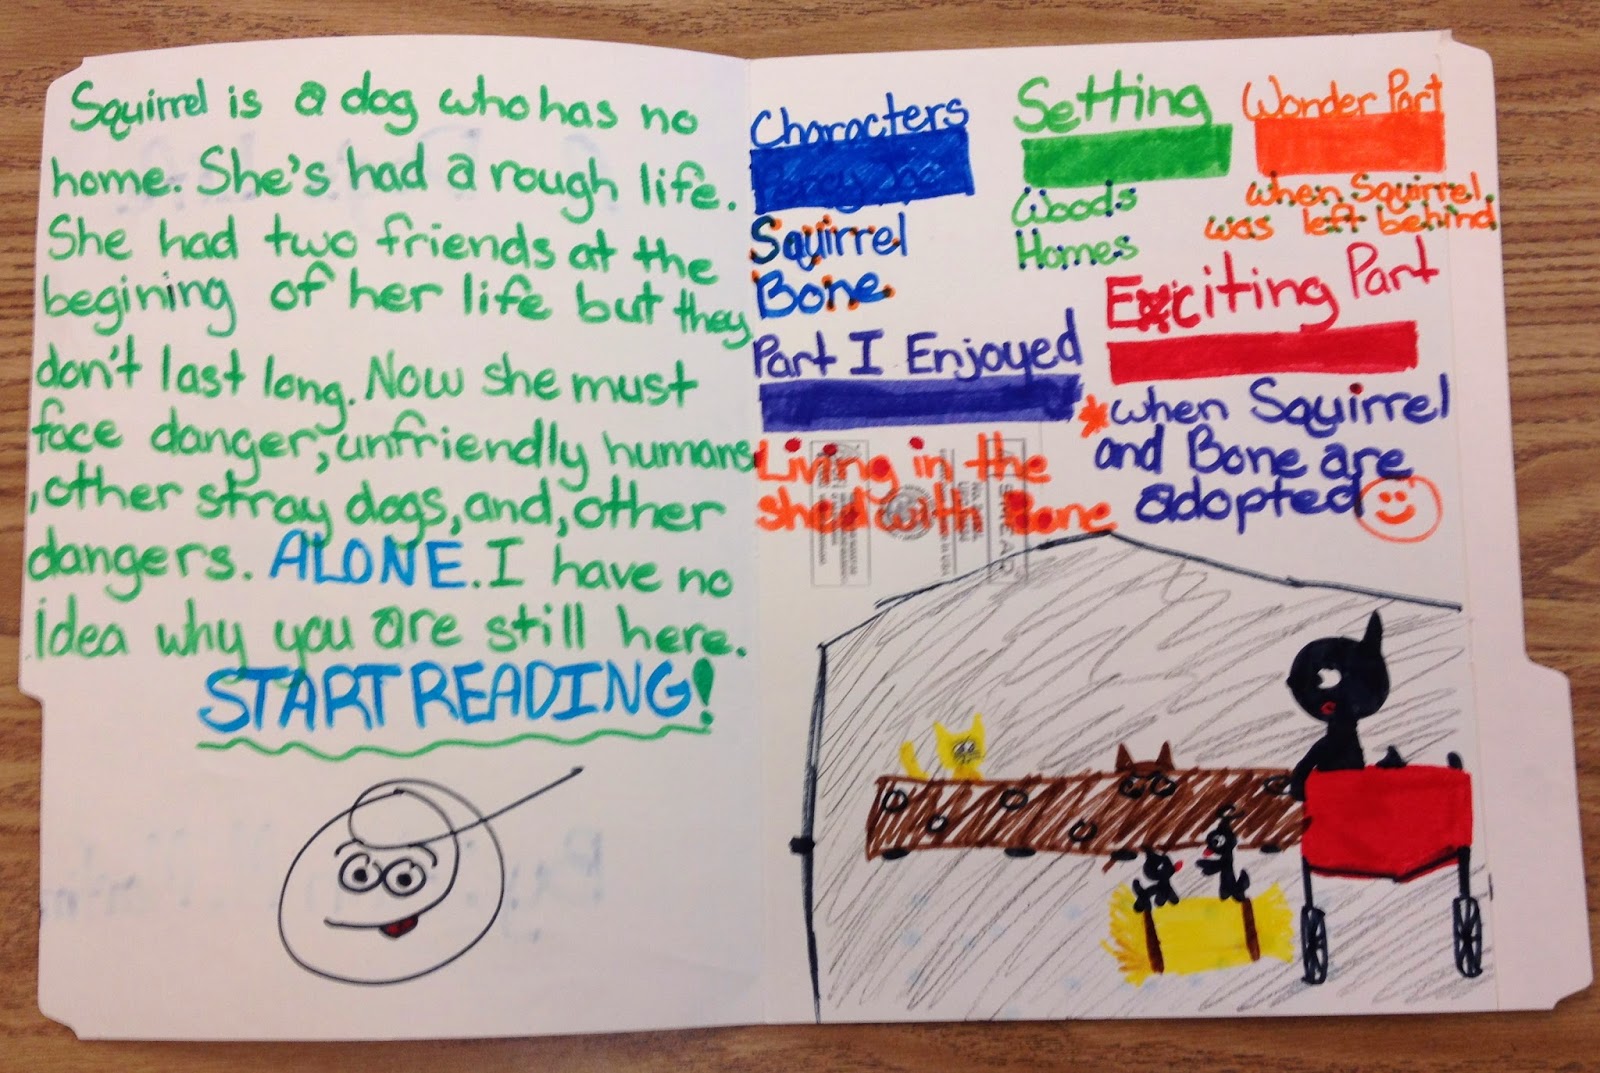 Squirrel is a dog who has no
home. She's had a rough life.
She had two friends at the
begining of her life but they
don't last long. Now she must
face danger, unfriendly humans
, other stray dogs, and, other
dangers. ALONE. I have no
idea why you are still here.
START READING!
Characters
Squirrel
Bone
Setting
Woods
Homes
Wonder Part
when Squirrel
was left behind
Part I Enjoyed
Living in the
shed with Bone
Exciting Part
*when Squirrel
and Bone are
adopted